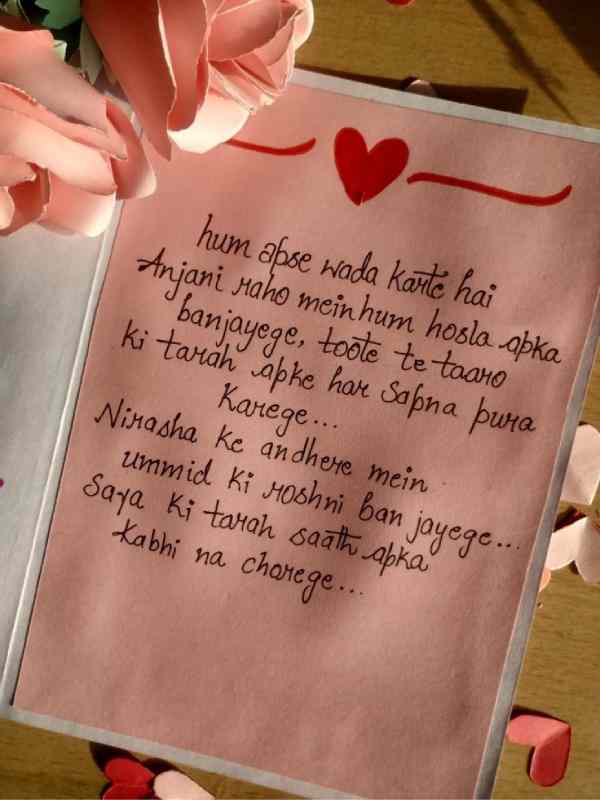 hum apse wada karte hai
Anjani raho mein hum hosla apka
banjayege, toote te taaro
ki tarah apke har sapna pura
karege...
Nirasha ke andhere mein
ummid ki roshni ban jayege...
Saya ki tarah saath apka
kabhi na chorege...